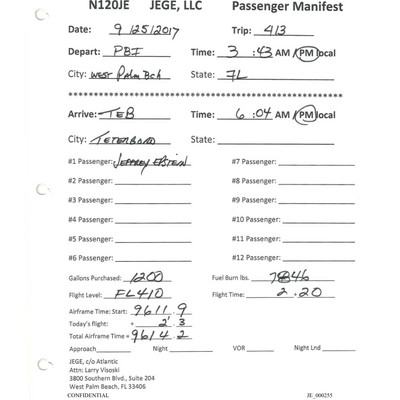 N120JE JEGE, LLC Passenger Manifest
Date: 9/25/2017 Trip: 413
Depart: PBI Time: 3:43 AM / PM local
City: WEST Palm Bch State: FL
Arrive: TEB Time: 6:04 AM / PM local
City: TETERBORO State:
#1 Passenger: JEFFREY EPSTEIN #7 Passenger:
#2 Passenger: #8 Passenger:
#3 Passenger: #9 Passenger:
#4 Passenger: #10 Passenger:
#5 Passenger: #11 Passenger:
#6 Passenger: #12 Passenger:
Gallons Purchased: 1200 Fuel Burn lbs. 7846
Flight Level: FL410 Flight Time: 2.20
Airframe Time: Start: 9611.9
Today's flight: + 2.3
Total Airframe Time = 9614.2
Approach Night VOR Night Lnd
JEGE, c/o Atlantic
Attn: Larry Visoski
3800 Southern Blvd., Suite 204
West Palm Beach, FL 33406
CONFIDENTIAL JE_000255